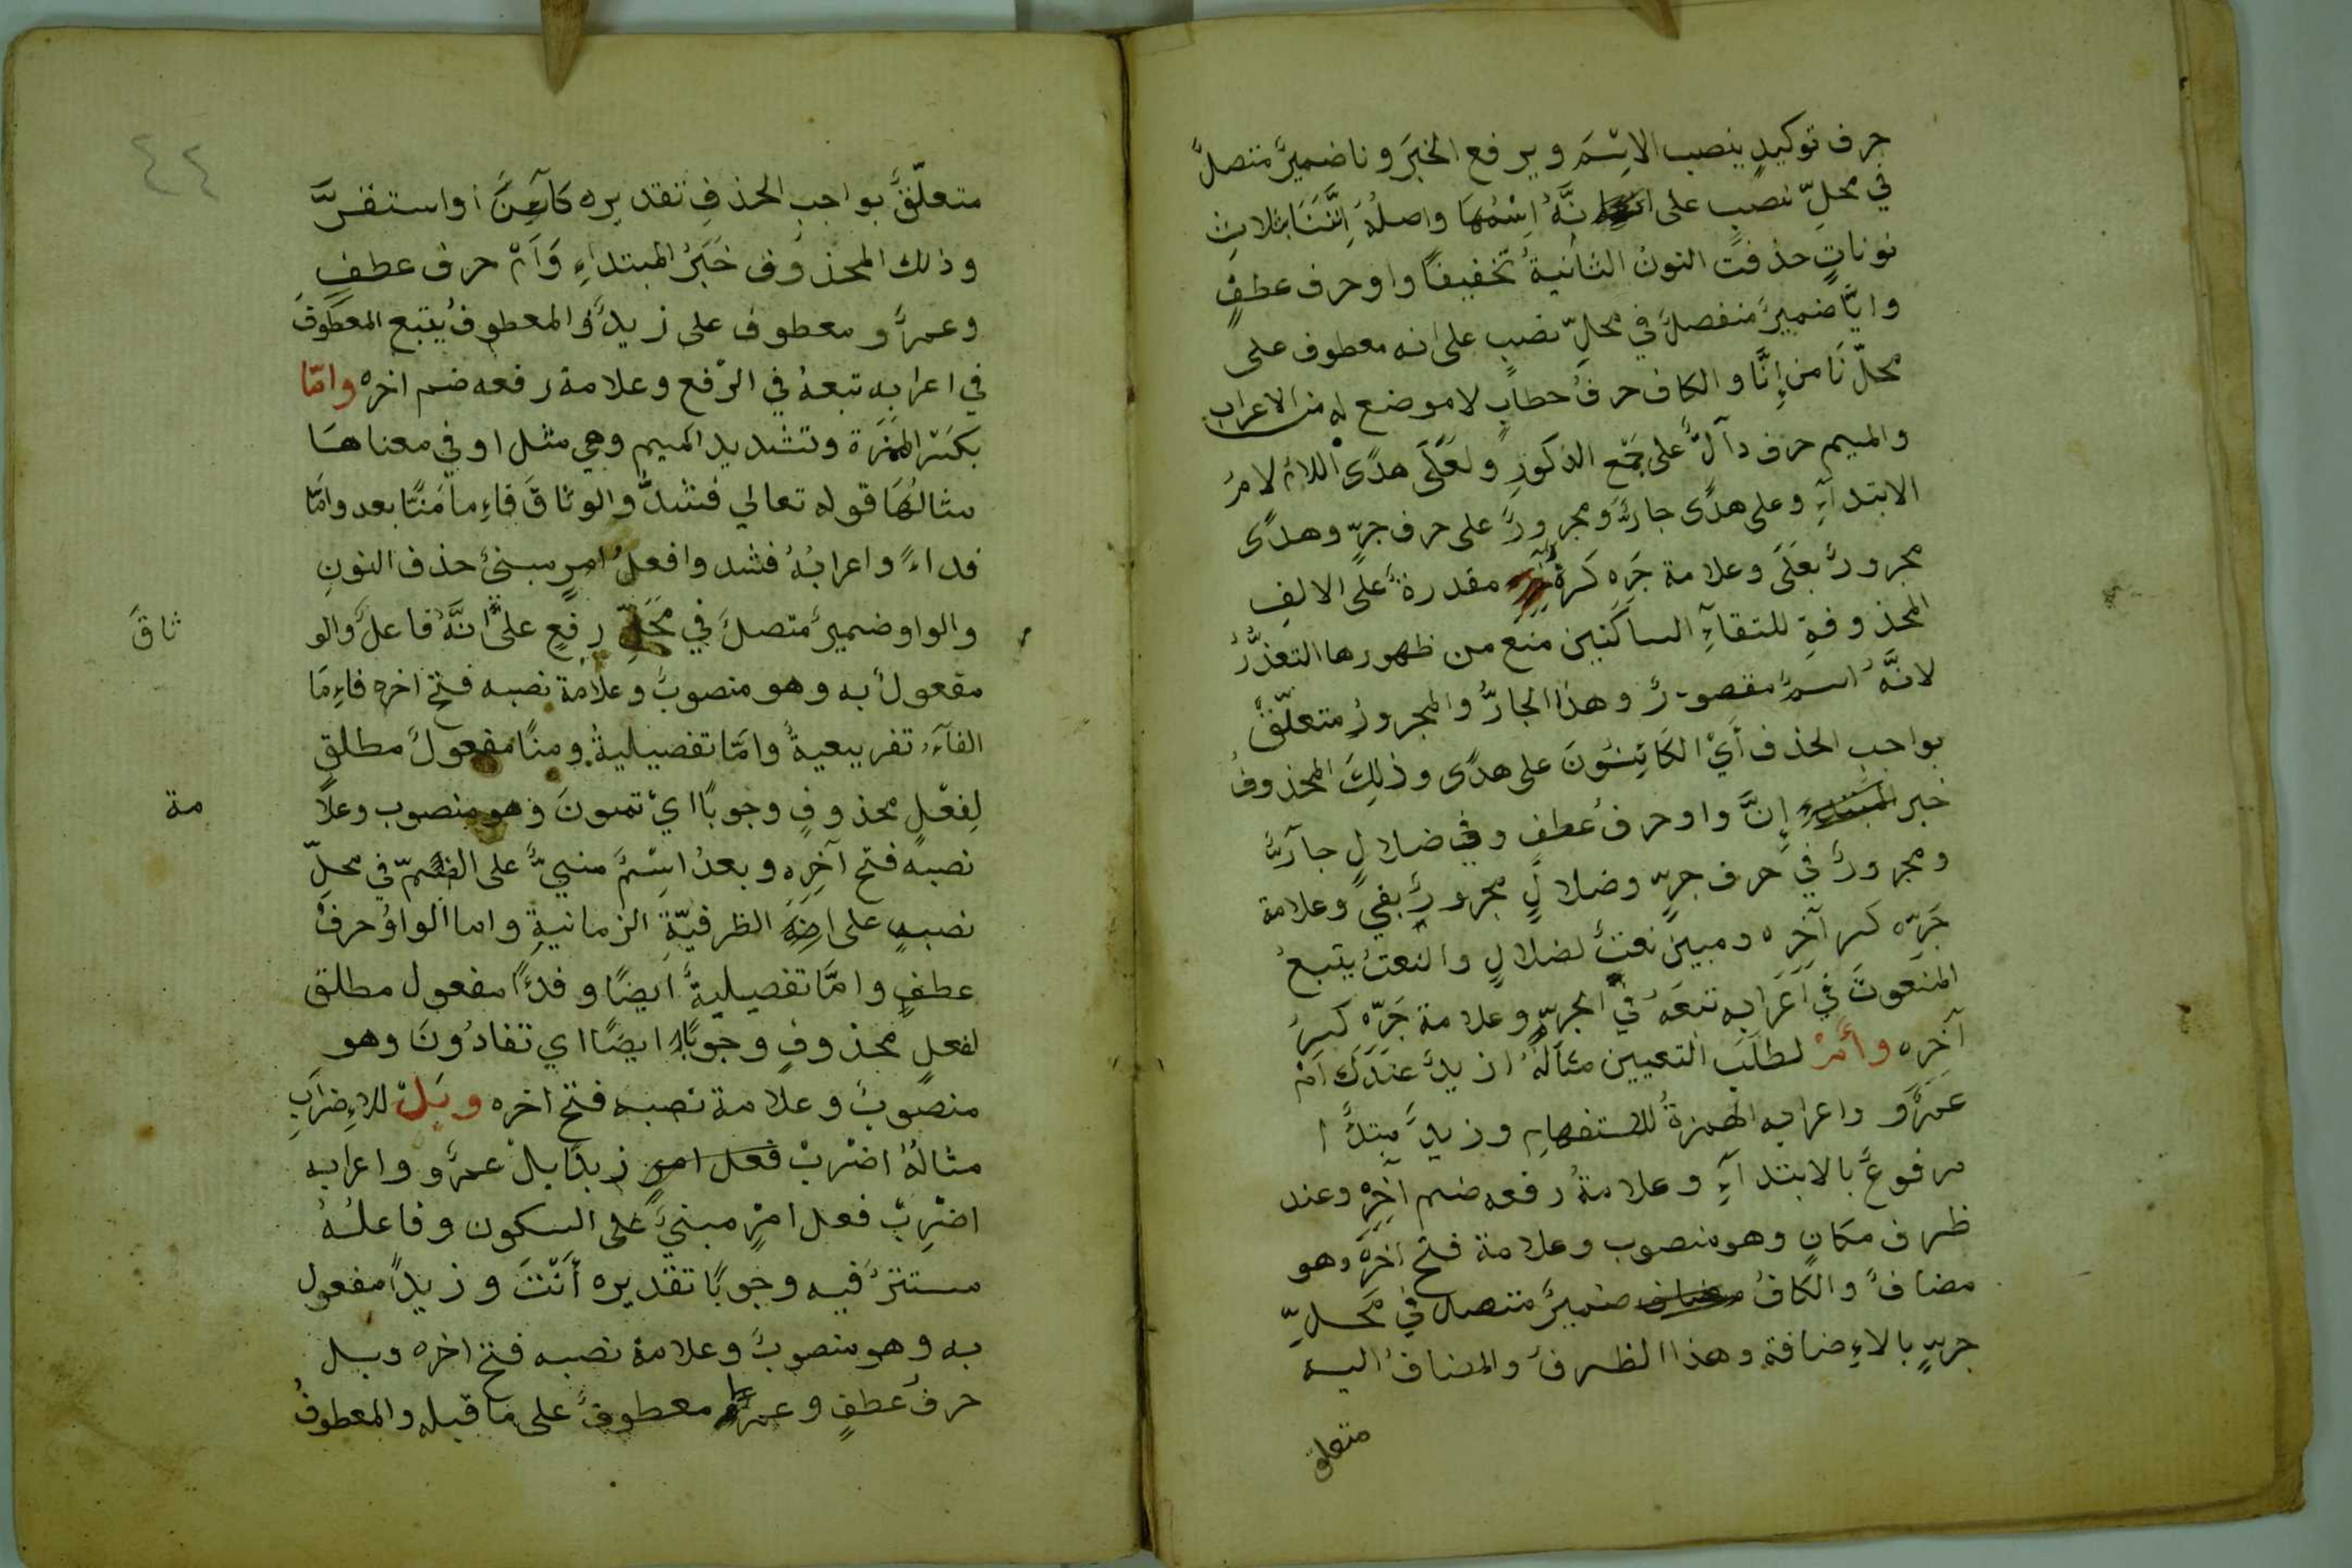 حرف توكيدٍ ينصب الاِسْمَ ويرفع الخبرَ ونا ضميرٌ متصلٌ
في محلِّ نصبٍ على انَّهُ اسْمُهَا واصلُهُ اِنَّنَا بثلاثِ
نوناتٍ حذفت النونُ الثانيةُ تخفيفًا واو حرف عطفٍ
وايّا ضميرٌ منفصلٌ في محلِّ نصبٍ على انه معطوف على
محلّ نَا من اِنَّا والكاف حرفُ خطابٍ لا موضع له من الاعراب
والميم حرف دآلٌّ على جَمْعِ الذكورِ ولَعَلَى هدًى اللامُ لامُ
الابتدآءِ وعلى هدًى جارٌّ ومجرورٌ على حرف جرٍّ وهدًى
مجرورٌ بعَلَى وعلامة جَرِه كسرةٌ مقدرةٌ على الالفِ
المحذوفةِ للتقآءِ الساكنين منع من ظهورها التعذّرُ
لانَّهُ اسمٌ مقصورٌ وهذا الجارُّ والمجرورُ متعلّقٌ
بواجب الحذف أيْ الكَائِنُونَ على هدًى وذلِكَ المحذوفُ
خبر المبتدإ إنَّ واو حرفُ عطفٍ وفي ضلالٍ جآرٌّ
ومجرورٌ في حرف جرٍّ وضلالٍ مجرورٌ بفي وعلامة
جَرِّه كسر آخِرِه ومبين نعتٌ لضلالٍ والنعتُ يتبعُ
المنعوتَ في اعَرَابه تبعَهُ في الجرِّ وعلامة جَرِّه كسرُ
آخِرِه وأَمْ لطلَبِ التعيين مثالُهُ ازيدٌ عندَكَ اَمْ
عَمرٌو واعرابه الهمزةُ للاستفهامِ وزيدٌ مبتدًا
مرفوعٌ بالابتدآءِ وعلامةُ رفعه ضم آخِرِهِ وعند
ظرف مكانٍ وهو منصوب وعلامة فتح اخرَه وهو
مضافٌ والكافُ مضاف ضميرٌ متصل في مَحلِّ
جرٍّ بالاِضافة وهذا الظرفُ والمضافُ اليه
متعلق
٤٤
متعلّقٌ بواجبِ الحذفِ تقديره كآئِنٌ أو استقرَّ
وذلك المحذوف خَبَرُ المبتداءِ وَاَمْ حرف عطفٍ
وعمرٌو معطوف على زيدٌ والمعطوفُ يتبع المعطوفَ
في اعرابه تبعهُ في الرّفع وعلامة رفعه ضم اخره وامّا
بكسر الهمزة وتشديد الميم وهي مثل او في معناها
مثالُهَا قوله تعالي فشدُّوا الوثاقَ فاِما مَنًّا بعد وامّا
فداءً واعرابُهُ فشدوا فعلُ امرٍ مبنيٌ حذف النونِ
والواو ضميرٌ متصلٌ في مَحَلِّ رفعٍ على انَّهُ فاعلٌ والو
ثاقَ
مفعولٌ به وهو منصوبٌ وعلامة نصبه فتح اخره فاِمَا
الفآءُ تفريعيةٌ وامّا تفصيليةٌ ومنًّا مفعولٌ مطلقٍ
لِفعْلٍ محذوفٍ وجوبًا ايْ تمنونَ وهو منصوب وعلا
مة
نصبه فتح آخِرِه وبعدُ اسْمٌ منبيٌّ على الضمّ في محلِّ
نصبٍ على الظرفيّةِ الزمانيةِ واما الواوُ حرفُ
عطفٍ وامَّا تفصيليةٌ ايضًا وفدًا مفعول مطلق
لفعلٍ محذوفٍ وجوبًا ايضًا اي تفادُونَ وهو
منصوبٌ وعلامة نصبه فتح اخره وبَلْ للاِضرَابِ
مثالهُ اضْربْ فعل امرٍ زيدًا بلْ عمرٌو واعرابه
اضْرِبْ فعل امْرٍ مبنيٌ على السكون وفاعلُهُ
مستترٌ فيه وجوبًا تقديره أَنْتَ وزيدًا مفعول
به وهو منصوبٌ وعلامة نصبه فتح اخره وبل
حرفُ عطفٍ وعمرًا معطوفٌ على ما قبله والمعطوفُ